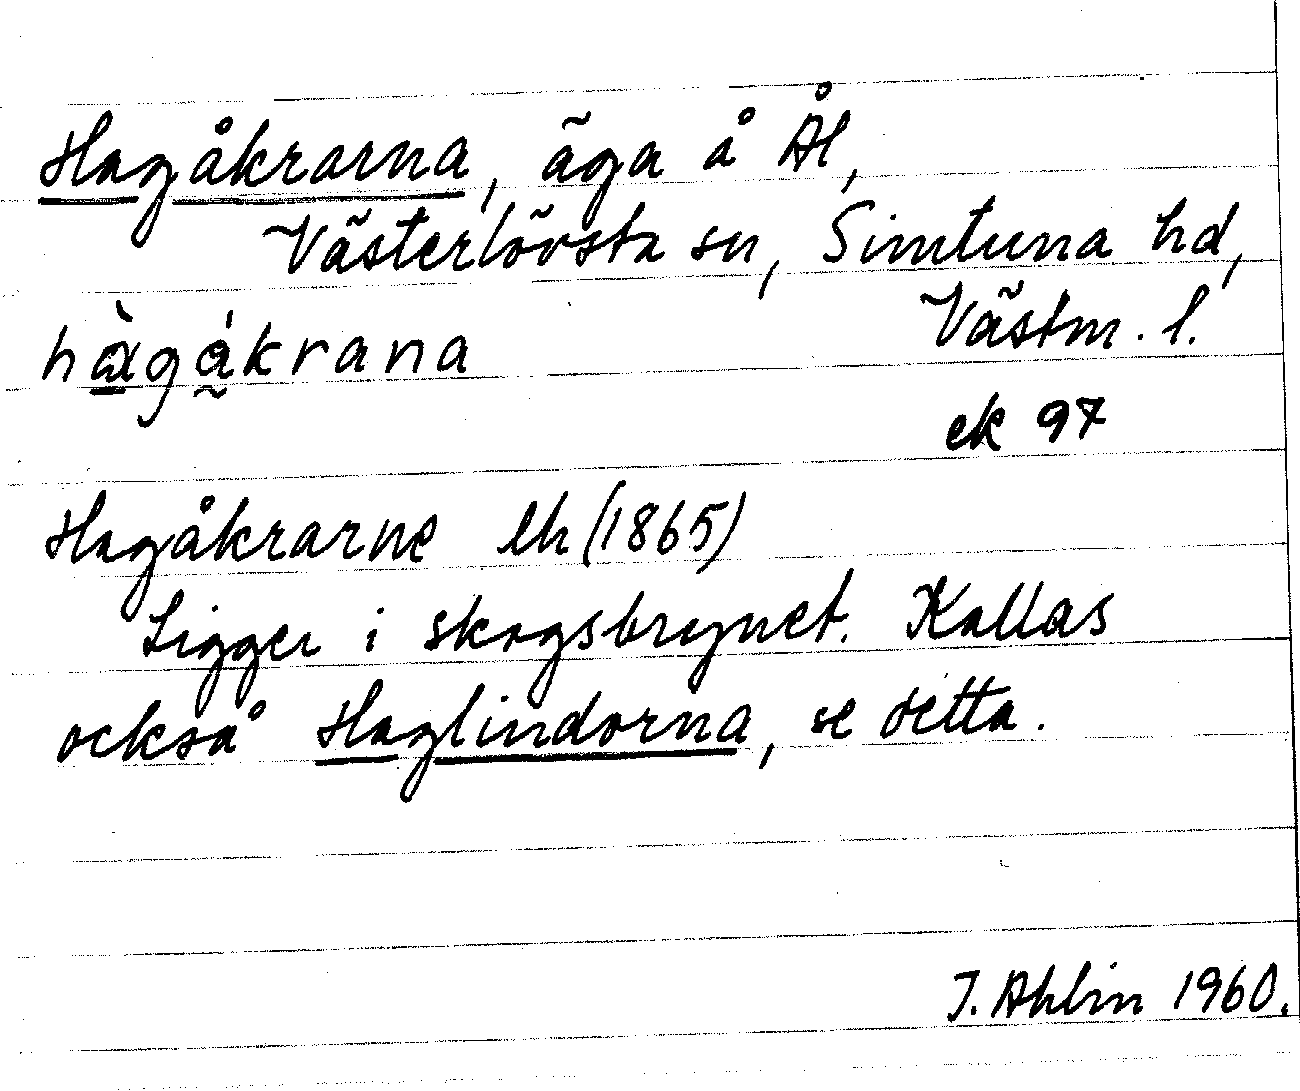 Hagåkrarna, äga å Ål,
Västerlövsta sn, Simtuna hd,
hàgåkrana Västm. l.
ek 97
Hagåkrarne lh (1865)
Ligger i skogsbrynet. Kallas
också Haglindorna, se detta.
J. Ahlin 1960.